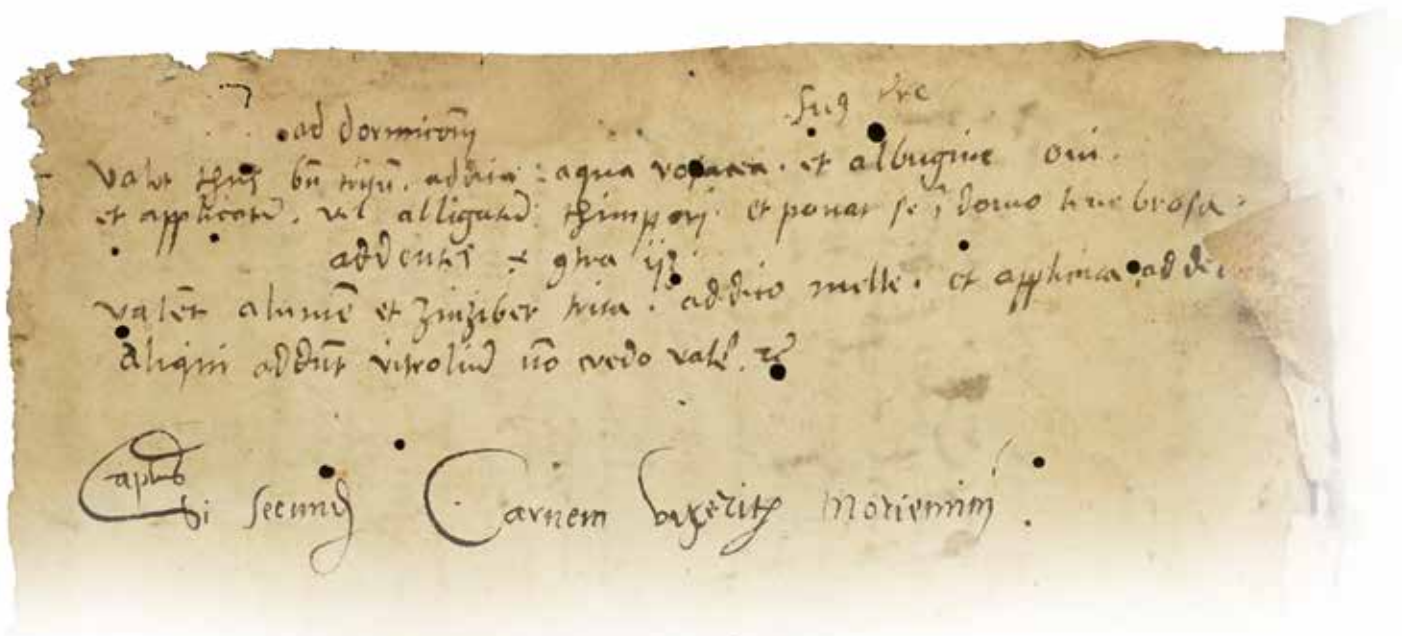 ad dormicōnē
valet thus bñ tritū. addita : aqua rosacea. et albugine oui.
et applicatū. vel alligatū thimpori. et ponat se ī domo tenebrosa.
ad dentes
valēt alumē et zinziber trita. addito melle. et applicata ad dē
Aliqui addūt vitrolū nō credo valē.
Si secund Carnem vixeritis moriemini.